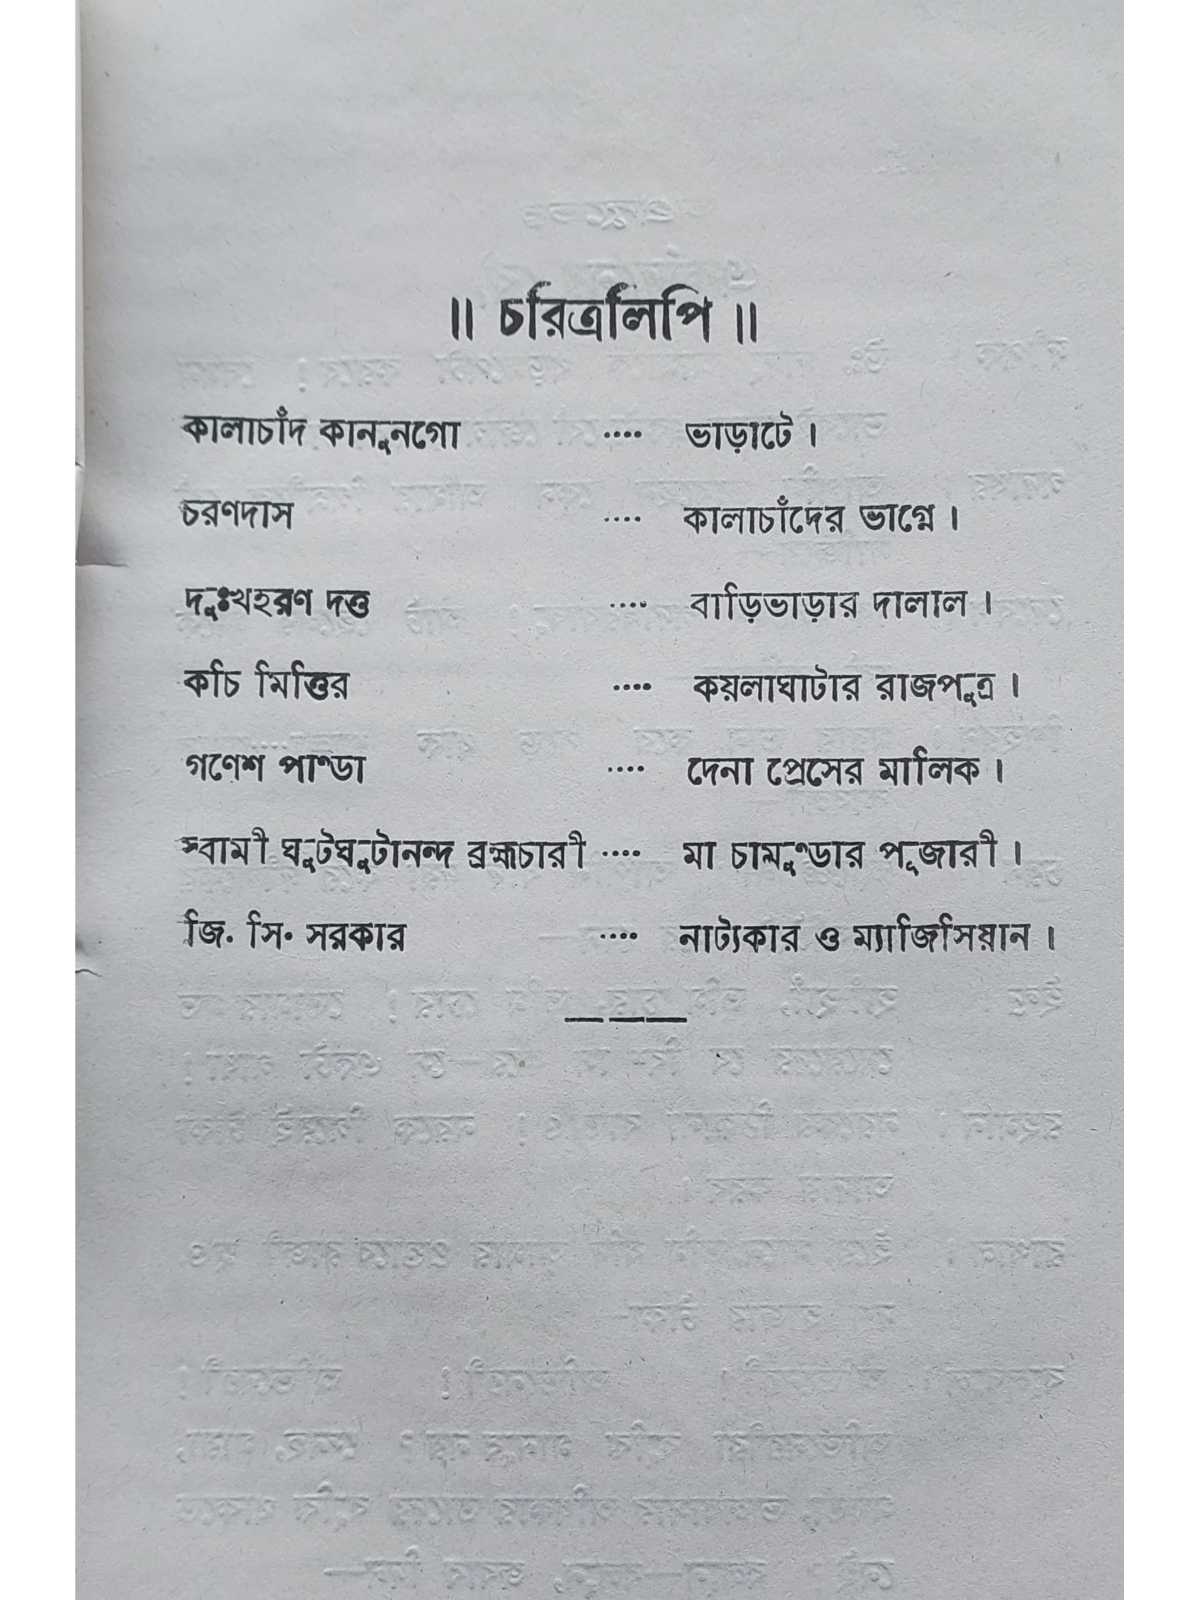 ॥ চরিত্রলিপি ॥
কালাচাঁদ কানুনগো .... ভাড়াটে ।
চরণদাস .... কালাচাঁদের ভাগ্নে ।
দুঃখহরণ দত্ত .... বাড়িভাড়ার দালাল ।
কচি মিত্তির .... কয়লাঘাটার রাজপুত্র ।
গণেশ পাণ্ডা .... দেনা প্রেসের মালিক ।
স্বামী ঘুটঘুটানন্দ ব্রহ্মচারী .... মা চামুণ্ডার পূজারী ।
জি. সি. সরকার .... নাট্যকার ও ম্যাজিসিয়ান ।